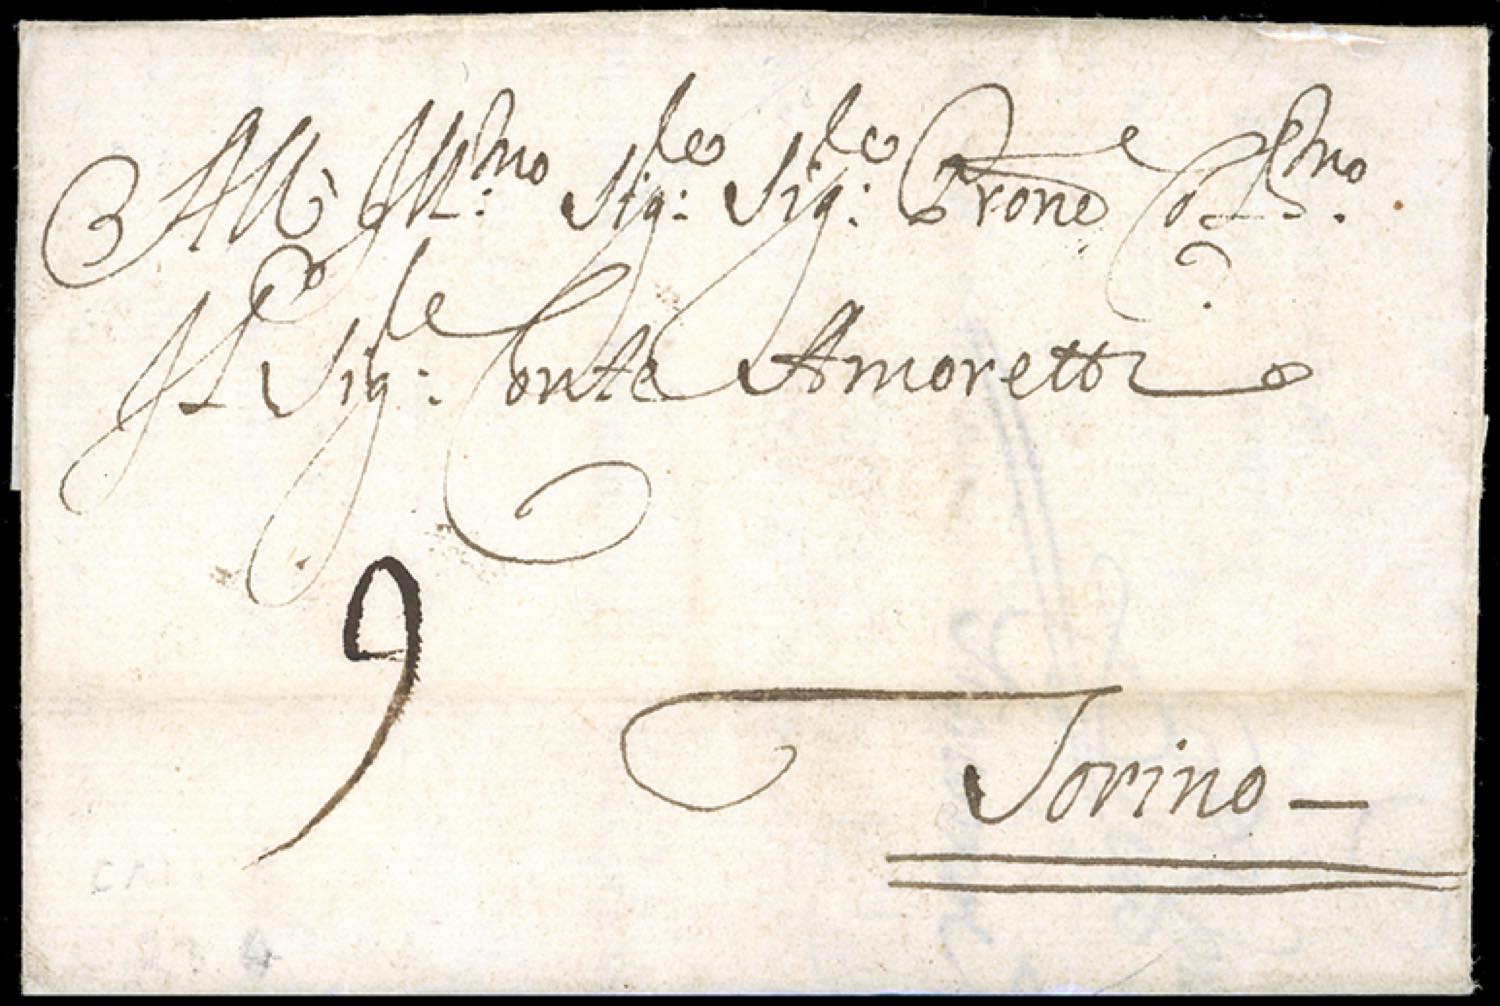 All Ill:mo Sig:re Sig:re Prone Col:mo
Il Sig:r Conte Amoretti
9
Torino —